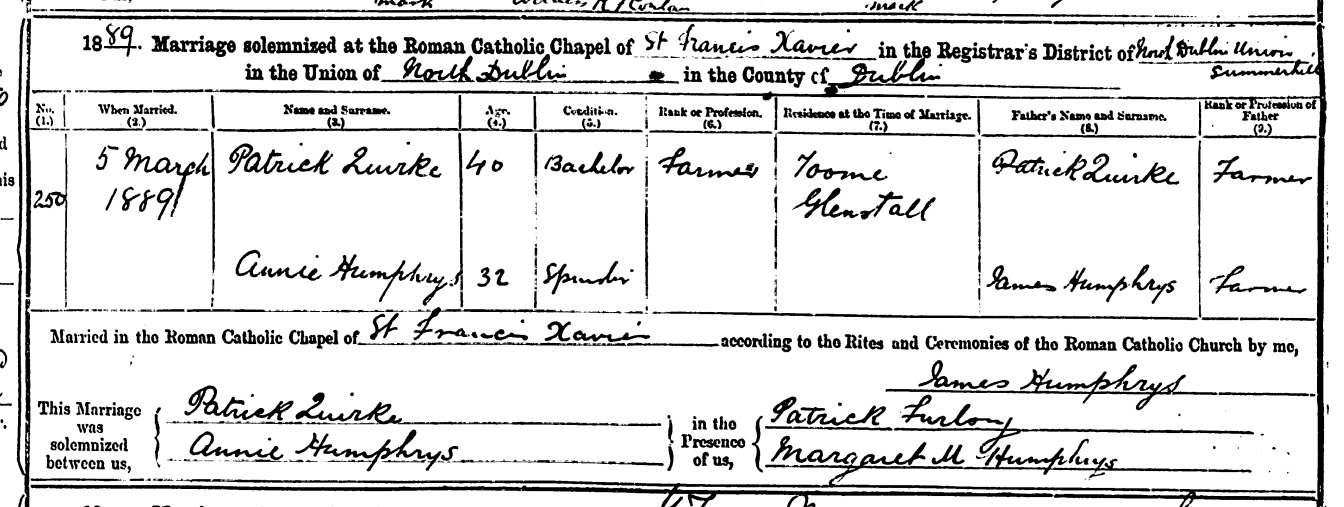 mark
mark
1889. Marriage solemnized at the Roman Catholic Chapel of St Francis Xavier in the Registrar's District of North Dublin Union Summerhill
in the Union of North Dublin in the County of Dublin
No. (1.) When Married. (2.) Name and Surname. (3.) Age. (4.) Condition. (5.) Rank or Profession. (6.) Residence at the Time of Marriage. (7.) Father's Name and Surname. (8.) Rank or Profession of Father (9.)
5 March Patrick Quirke 40 Bachelor Farmer Toome Patrick Quirke Farmer
250 1889 Glenstall
Annie Humphrys 32 Spinster James Humphrys Farmer
Married in the Roman Catholic Chapel of St Francis Xavier according to the Rites and Ceremonies of the Roman Catholic Church by me,
James Humphrys
This Marriage was solemnized between us,
Patrick Quirke
Annie Humphrys
in the Presence of us,
Patrick Furlong
Margaret M Humphrys